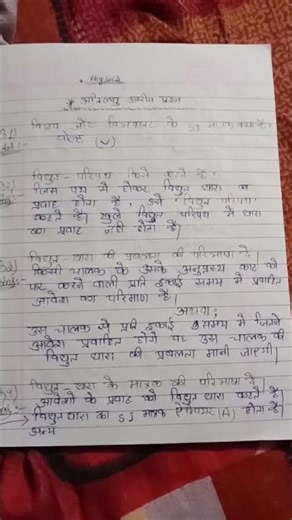 Physics
* अतिलघु उत्तरीय प्रश्न
विभव और विभवान्तर के SI मात्रक क्या है।
वोल्ट (V)
विद्युत - परिपथ किसे कहते हैं?
जिस पथ से होकर विद्युत धारा का
प्रवाह होता है, उसे 'विद्युत परिपथ'
कहते हैं। खुले विद्युत परिपथ में धारा
का प्रवाह नहीं होता है।
विद्युत - धारा की प्रबलता की परिभाषा दें।
किसी चालक के उसके अनुप्रस्थ काट को
पार करने वाली प्रति इकाई समय में प्रवाहित
आवेश का परिमाण है।
अथवा;
उस चालक से प्रति इकाई समय में जितने
आवेश प्रवाहित होंगे वह उस चालक की
विद्युत धारा की प्रबलता मानी जाएगी।
विद्युत - धारा के मात्रक की परिभाषा दें।
आवेशों के प्रवाह को विद्युत धारा कहते हैं।
विद्युत धारा का SI मात्रक ऐम्पियर (A) होता है।